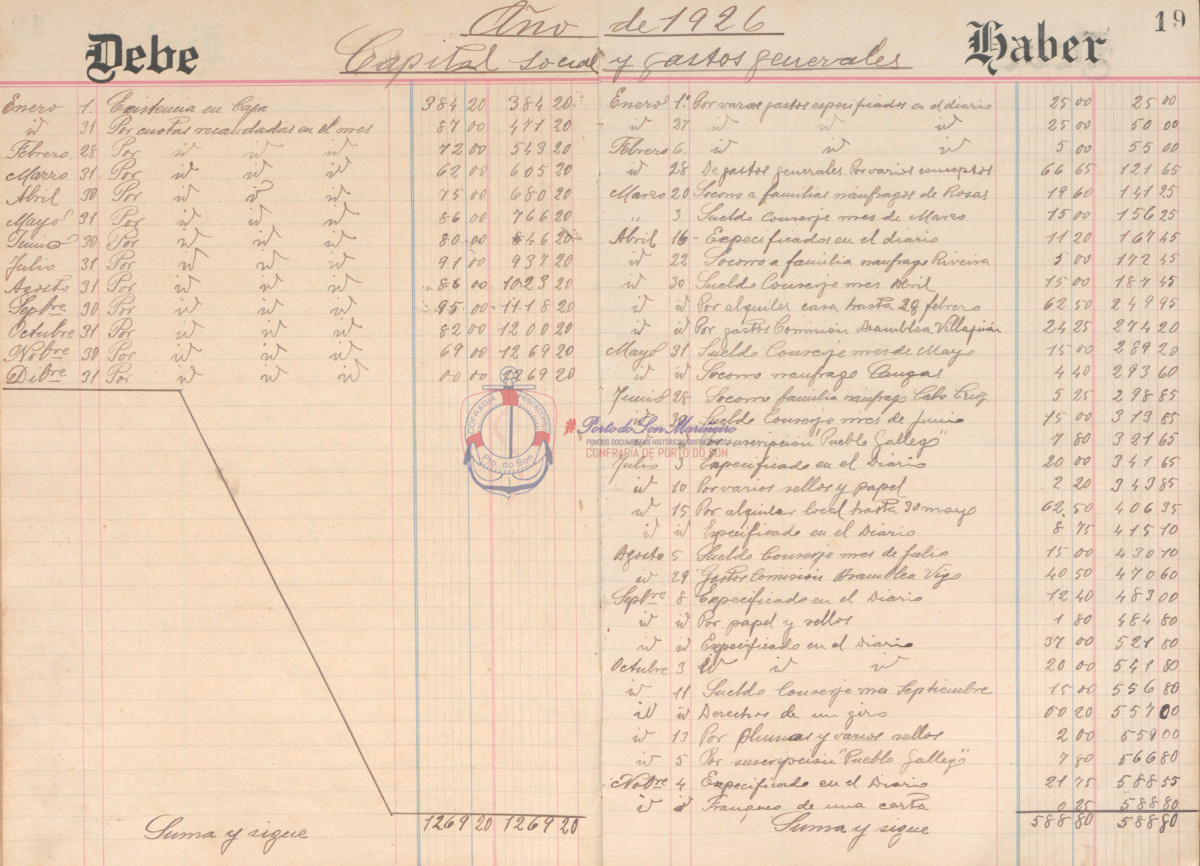 Año de 1926
19
Debe
Haber
Capital social y gastos generales
Enero 1. Existencia en Caja 384 20 384 20
id 31 Por cuotas recaudadas en el mes 87 00 471 20
Febrero 28 Por id id id 72 00 543 20
Marzo 31 Por id id id 62 00 605 20
Abril 30 Por id id id 75 00 680 20
Mayo 31 Por id id id 86 00 766 20
Junio 30 Por id id id 80 00 846 20
Julio 31 Por id id id 91 00 937 20
Agosto 31 Por id id id 86 00 1023 20
Septbre 30 Por id id id 95 00 1118 20
Octubre 31 Por id id id 82 00 1200 20
Nobre 30 Por id id id 69 00 1269 20
Dibre 31 Por id id id 00 00 1269 20
Suma y sigue 1269 20 1269 20
Enero 1º Por varios gastos especificados en el diario 25 00 25 00
id 27 id id id 25 00 50 00
Febrero 6 id id id 5 00 55 00
id 28 De gastos generales. Por varios conceptos 66 65 121 65
Marzo 20 Socorro a familias náufragos de Rosas 19 60 141 25
" 3 Sueldo Conserje mes de Marzo 15 00 156 25
Abril 16 - Especificados en el diario 11 20 167 45
id 22 Socorro a familia naufrago Riveira 5 00 172 45
id 30 Sueldo Conserje mes Abril 15 00 187 45
id id Por alquiler casa hasta 28 febrero 62 50 249 95
id id Por gastos Comisión Asamblea Villajuán 24 25 274 20
Mayo 31 Sueldo Conserje mes de Mayo 15 00 289 20
id id Socorro naufrago Cangas 4 40 293 60
Junio 28 Socorro familia naufrago Cabo Cruz 5 25 298 85
id 30 Sueldo Conserje mes de Junio 15 00 313 85
suscripcion "Pueblo Gallego" 7 80 321 65
Julio 3 Especificado en el Diario 20 00 341 65
id 10 Por varios sellos y papel 2 20 343 85
id 15 Por alquilar local hasta 30 mayo 62 50 406 35
id id Especificado en el Diario 8 75 415 10
Agosto 5 Sueldo Conserje mes de Julio 15 00 430 10
id 29 Gastos Comisión Asamblea Vigo 40 50 470 60
Septbre 8 - Especificado en el Diario 12 40 483 00
id id Por papel y sellos 1 80 484 80
id id Especificado en el Diario 37 00 521 80
Octubre 3 id id id 20 00 541 80
id 11 Sueldo Conserje mes Septiembre 15 00 556 80
id id Derechos de un giro 00 20 557 00
id 13 Por plumas y varios sellos 2 00 559 00
id 5 Por suscripcion "Pueblo Gallego" 7 80 566 80
Nobre 4 Especificado en el Diario 21 75 588 55
id id Franqueo de una carta 0 25 588 80
Suma y sigue 588 80 588 80
COFRADIA PESCADORES
Pto. do Son
#PortodoSonMariñeiro
FONDOS DOCUMENTAIS HISTÓRICOS DIXITALIZADOS
CONFRARIA DE PORTO DO SON